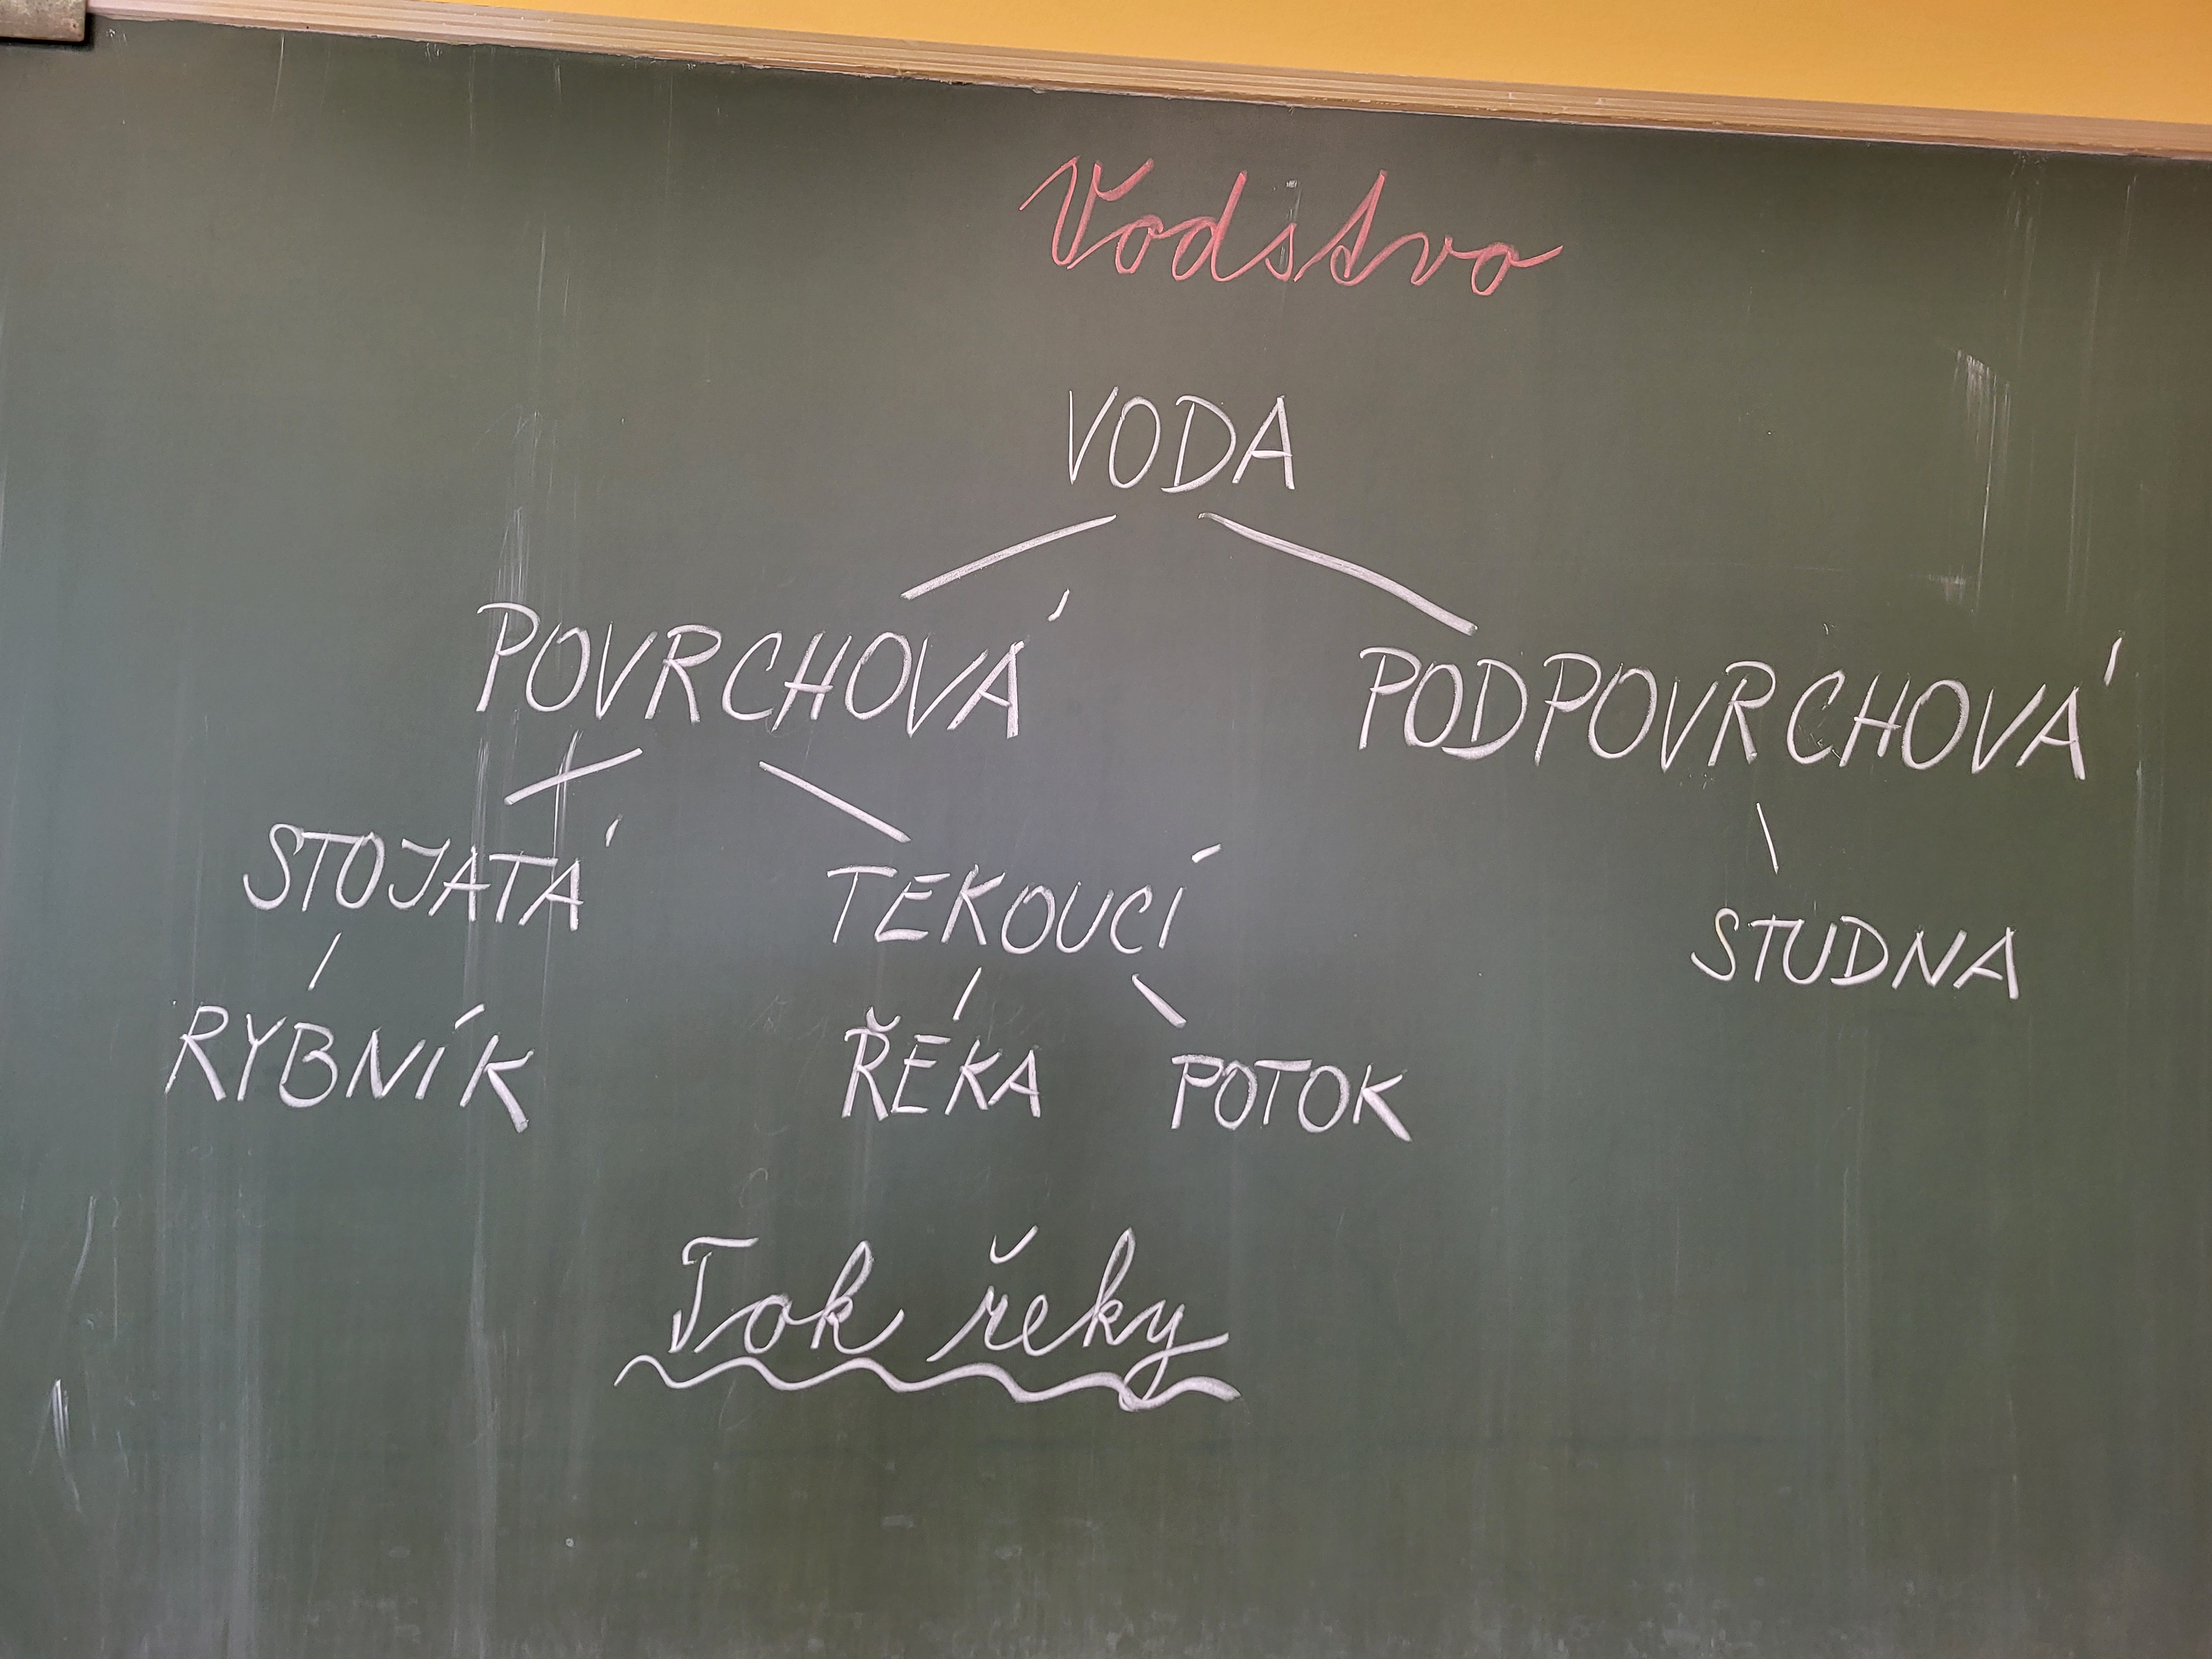 Vodstvo
VODA
POVRCHOVÁ PODPOVRCHOVÁ
STOJATÁ TEKOUCÍ STUDNA
RYBNÍK ŘEKA POTOK
Tok řeky